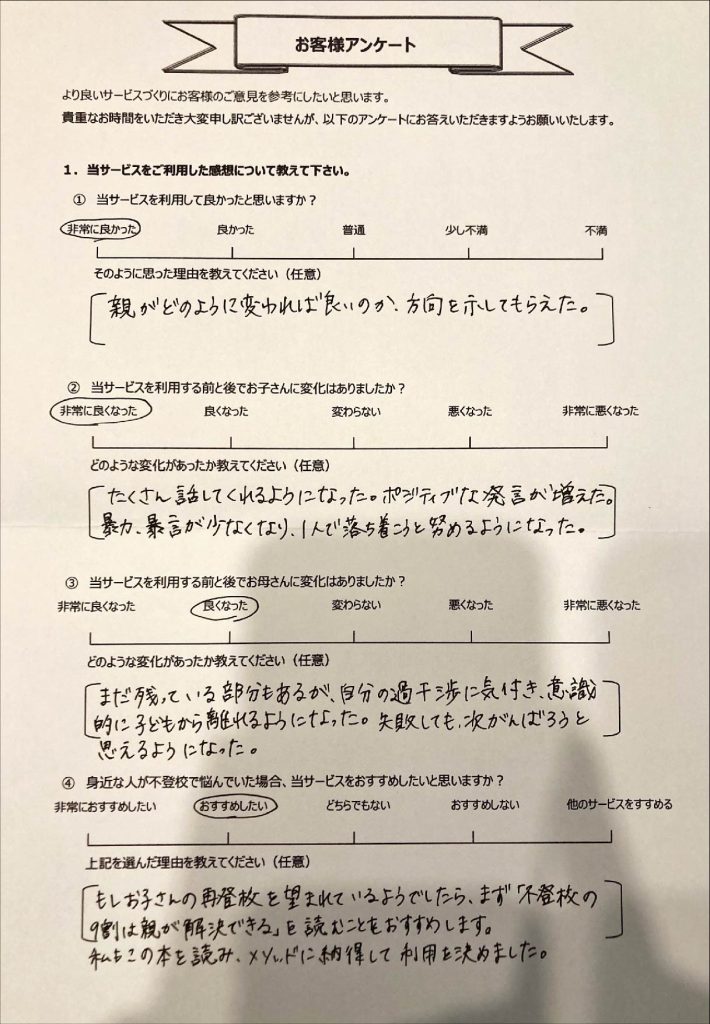 お客様アンケート
より良いサービスづくりにお客様のご意見を参考にしたいと思います。
貴重なお時間をいただき大変申し訳ございませんが、以下のアンケートにお答えいただきますようお願いいたします。
1．当サービスをご利用した感想について教えて下さい。
① 当サービスを利用して良かったと思いますか？
非常に良かった 良かった 普通 少し不満 不満
そのように思った理由を教えてください（任意）
親がどのように変われば良いのか、方向を示してもらえた。
② 当サービスを利用する前と後でお子さんに変化はありましたか？
非常に良くなった 良くなった 変わらない 悪くなった 非常に悪くなった
どのような変化があったか教えてください（任意）
たくさん話してくれるようになった。ポジティブな発言が増えた。
暴力、暴言が少なくなり、1人で落ち着こうと努めるようになった。
③ 当サービスを利用する前と後でお母さんに変化はありましたか？
非常に良くなった 良くなった 変わらない 悪くなった 非常に悪くなった
どのような変化があったか教えてください（任意）
まだ残っている部分もあるが、自分の過干渉に気付き、意識
的に子どもから離れるようになった。失敗しても、次がんばろうと
思えるようになった。
④ 身近な人が不登校で悩んでいた場合、当サービスをおすすめしたいと思いますか？
非常におすすめしたい おすすめしたい どちらでもない おすすめしない 他のサービスをすすめる
上記を選んだ理由を教えてください（任意）
もしお子さんの再登校を望まれているようでしたら、まず「不登校の
9割は親が解決できる」を読むことをおすすめします。
私もこの本を読み、メソッドに納得して利用を決めました。